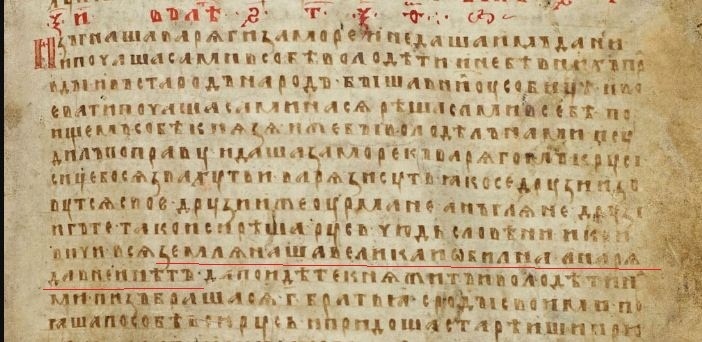 И҇ЗЪГНАША ВАРѦГИ ЗАМОРЕ И НЕДАША ИМЪ ДАНИ
И ПОЧАША САМИ В СОБѢ ВОЛОДѢТИ И НЕ БѢ В НИХЪ ПРА
ВДЫ И ВЪСТА РОДЪ НА РОДЪ · БЫША В НИ ОУСОБИЦѢ И ВО
ЄВАТИ ПОЧАША САМИ НА СѦ РѢША САМИ В СЕБѢ ПО
ИЩЕМЪ СОБѢ КНѦЗѦ ИЖЕ БЫ ВОЛОДѢЛЪ НАМИ И СУ
ДИЛЪ ПО ПРАВУ ИДАША ЗА МОРЕ КЪ ВАРѦГОМЪ К РУСИ
СИЦЕ БО СѦ ЗВАХУТЬ И ВАРѦЗИ СУТЬ ꙖКО СЕ ДРУЗИИ ЗЪ
ВУТСѦ СВОЕ · ДРУЗИИ ЖЕ ОУРМАНЕ АНЪГЛѦНЕ ДРУЗІ
И ГЪТЕ ТАКО И СИ РѢША РУСЬ ЧЮДЬ СЛОВѢНИ И КРИ
ВИЧИ ВСѦ ЗЕМЛѦ НАША ВЕЛИКА И ѠБИЛНА · А НАРѦ
ДА В НЕИ НѢТЪ · ДА ПОИДѢТЕ КНѦЖИТЪ И ВОЛОДѢТИ НА
МИ · И ИЗЪБРАШАСѦ Г҃ БРАТЬꙖ С РОДЫ СВОИМИ · ПО
ꙖША ПО СОБѢ ВСЮ РУСЬ И ПРИДОША СТАРѢИШИИ